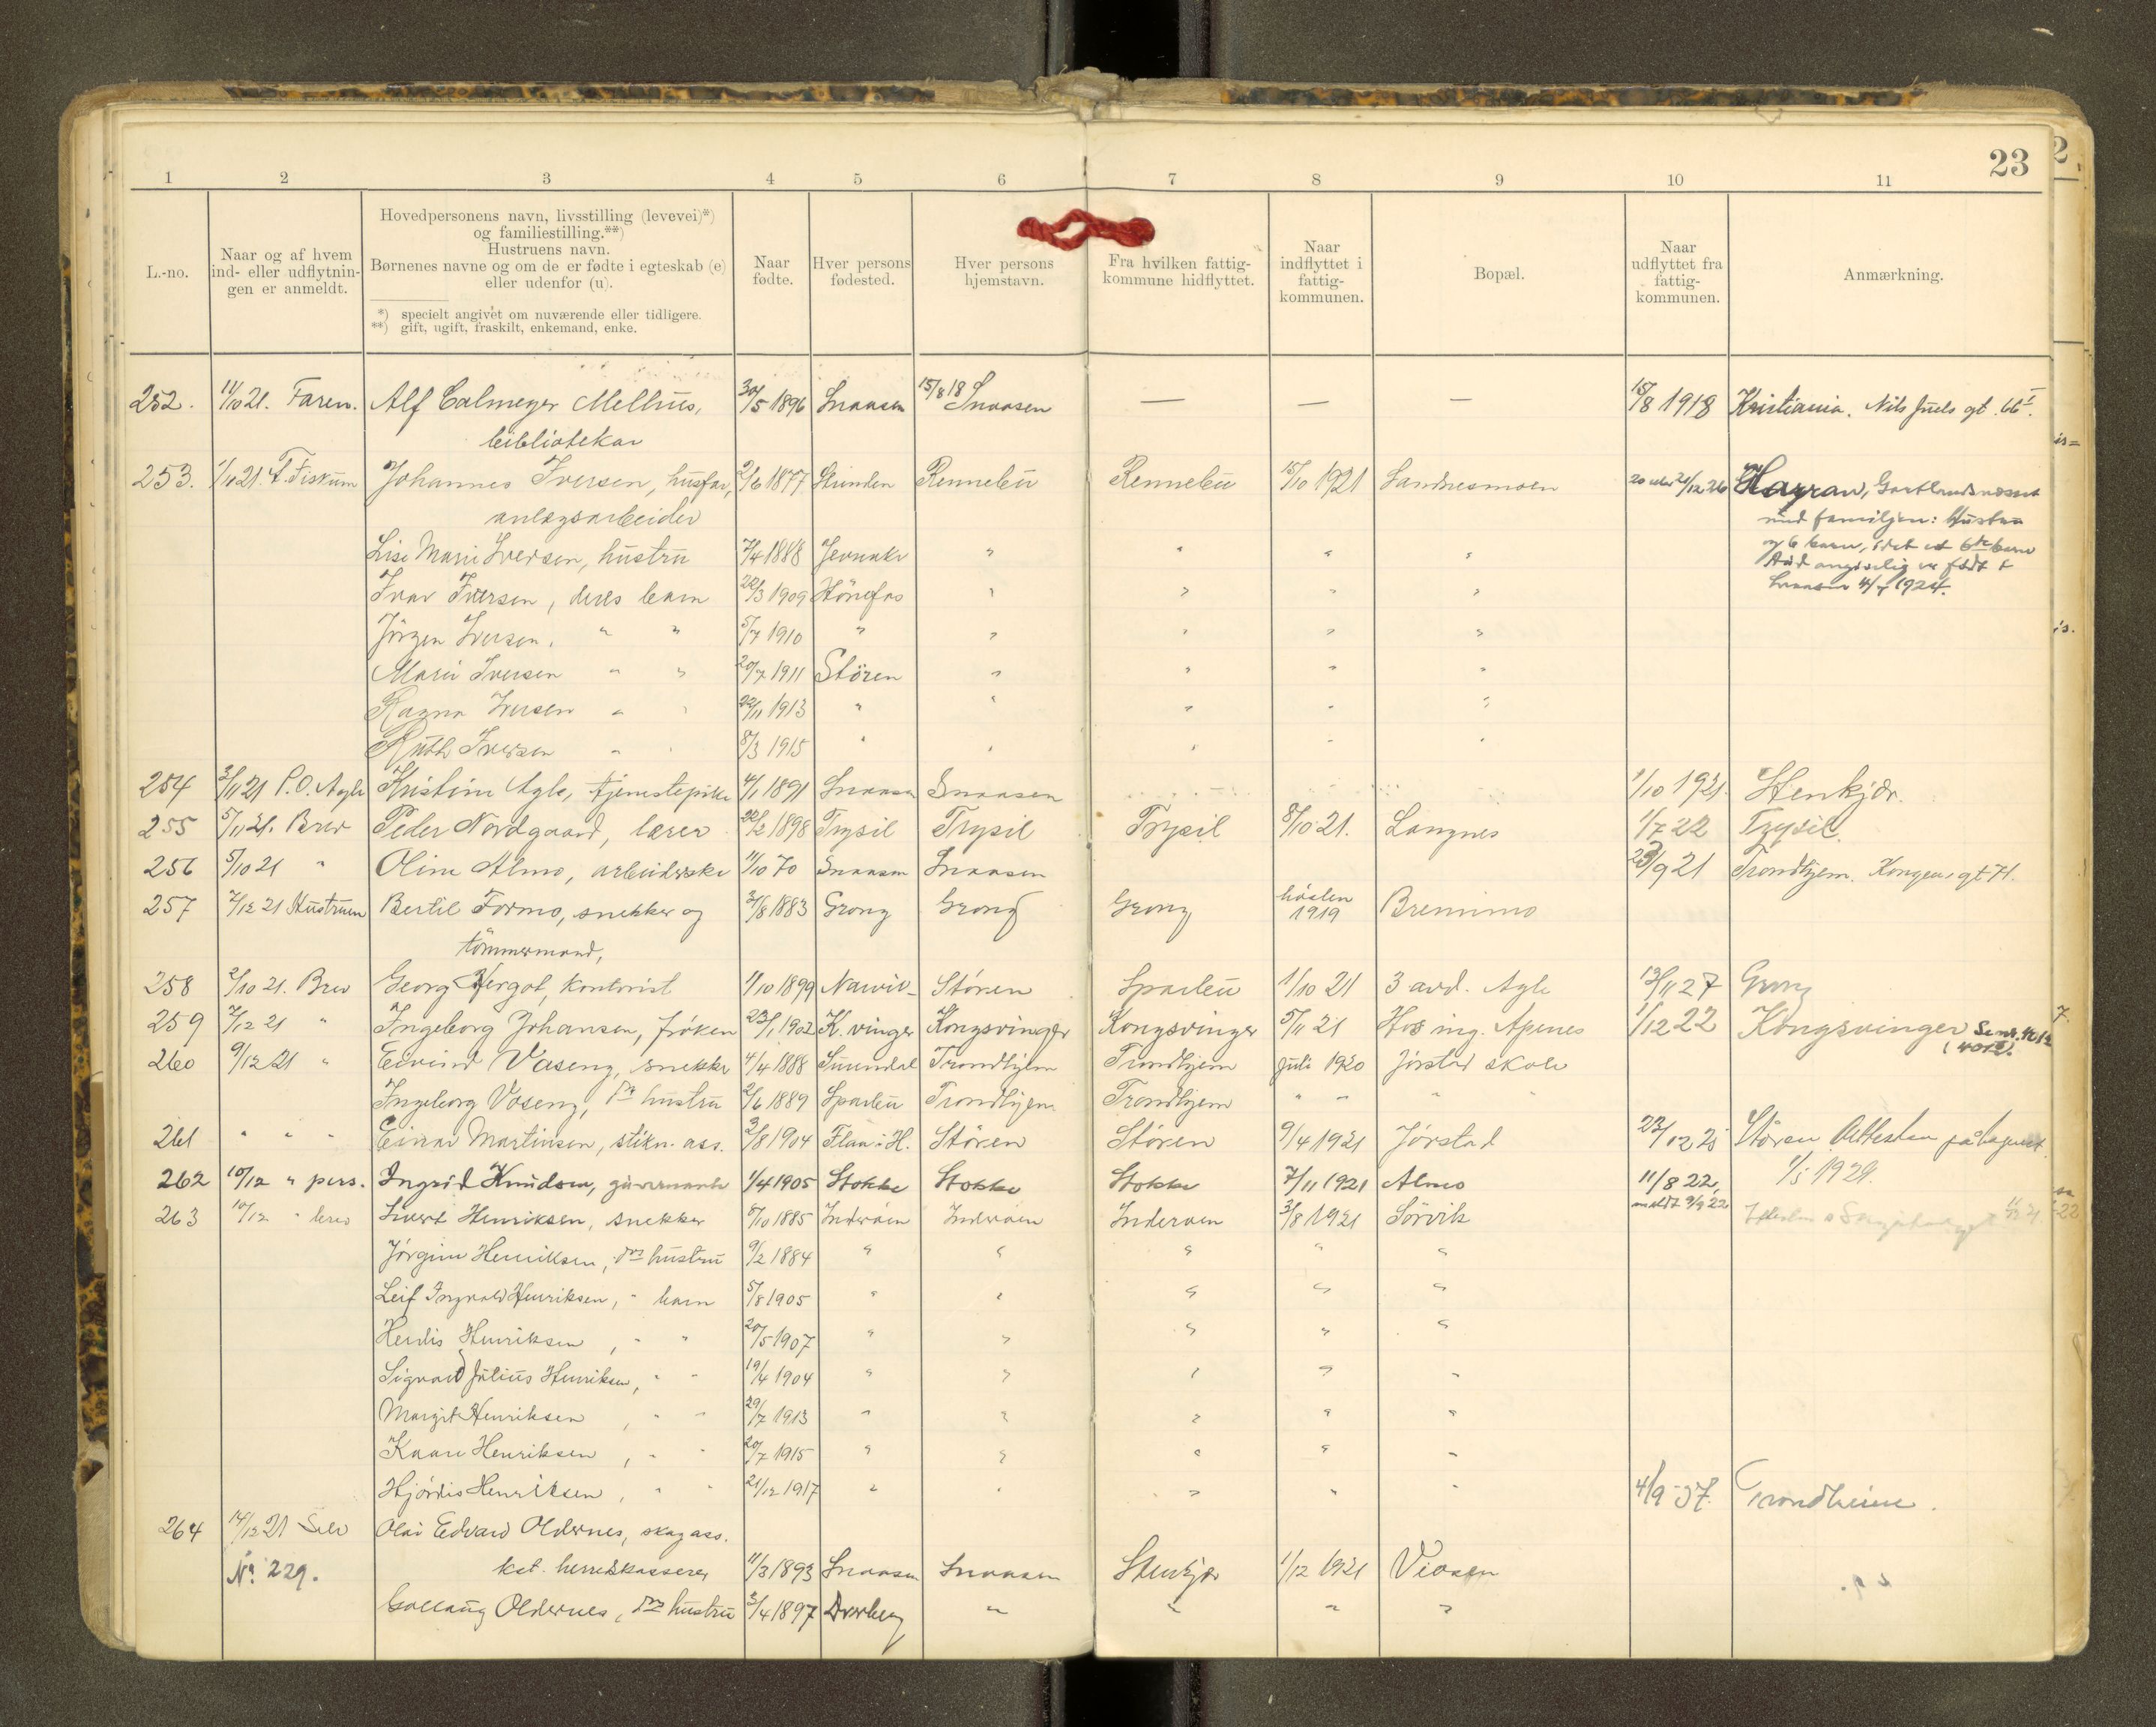 23
1 2 3 4 5 6 7 8 9 10 11
L.-no.
Naar og af hvem
ind- eller udflytnin-
gen er anmeldt.
Hovedpersonens navn, livsstilling (levevei)*)
og familiestilling.**)
Hustruens navn.
Børnenes navne og om de er fødte i egteskab (e)
eller udenfor (u).
*) specielt angivet om nuværende eller tidligere.
**) gift, ugift, fraskilt, enkemand, enke.
Naar
fødte.
Hver persons
fødested.
Hver persons
hjemstavn.
Fra hvilken fattig-
kommune hidflyttet.
Naar
indflyttet i
fattig-
kommunen.
Bopæl.
Naar
udflyttet fra
fattig-
kommunen.
Anmærkning.
252. 11/10 21. Faren. Alf Calmeyer Mellbüs, 30/5 1896 Snaasen 15/8 18 Snaasen — — — 15/8 1918 Kristiania. Nils Juels gt. 66 I.
bibliotekar
253. 1/11 21. F. Fiskum Johannes Iversen, husfar, 2/6 1877 Grunden Rennebu Rennebu 15/10 1921 Sandnesmoen 20 eller 21/12 26 Harran, Gartlandsnesset
anlægsarbeider med familjen: Hustru
Lise Marie Iversen, hustru 7/4 1888 Jevnaker " " " " og 6 barn, idet et 6te barn
Ivar Iversen, deres barn 22/3 1909 Hönefos " " " " Aud angivelig er født i
Snaasen 4/7 1924.
Jörgen Iversen, " " 5/7 1910 " " " " "
Marie Iversen " " 20/7 1911 Stören " " " "
Ragna Iversen " " 22/11 1913 " " " " "
Ruth Iversen " " 8/3 1915 " " " " "
254 3/11 21 P.O. Agle Kristine Agle, tjenestepike 4/1 1891 Snaasen Snaasen 1/10 1921. Stenkjær.
255 5/11 21. Brev Peder Nordgaard, lærer 22/2 1898 Trysil Trysil Trysil 8/10 21. Langnes 1/7 22 Trysil.
256 5/10 21 " Oline Almo, arbeiderske 11/10 70 Snaasen Snaasen 23/9 21 Trondhjem. Kongens gt 71.
257 7/12 21 Hustruen Bertil Formo, snekker og 31/8 1883 Grong Grong Grong hösten 1919 Bremmo
tömmermand,
258 2/10 21. Brev Georg Hergot, kontorist 1/10 1899 Narvik Stören Sparbu 1/10 21 3 avd. Agle 13/11 27 Grong
259 7/12 21 " Ingeborg Johansen, fröken 23/1 1902 K.vinger Kongsvinger Kongsvinger 5/11 21 Hos ing. Apenes 1/12 22 Kongsvinger Se nr. 4012
(4012).
260 9/12 21 " Eivind Vaseng, snekker 4/4 1888 Sunndal Trondhjem Trondhjem juli 1920 Jörstad skole
Ingeborg Vaseng, ds hustru 2/6 1889 Sparbu Trondhjem Trondhjem " " "
261 " " " Einar Martinsen, stikn. ass. 3/8 1904 Flaa i H. Stören Stören 9/4 1921 Jörstad 23/12 25 Stören. Attesten påtegnet
1/5 1929.
262 10/12 " pers. Ingrid Knudsen, guvernante 1/4 1905 Stokke Stokke Stokke 7/11 1921 Almo 11/8 22,
meldt 9/9 22
263 10/12 " brev Sivert Henriksen, snekker 5/10 1885 Inderöen Inderöen Inderöen 3/8 1921 Sörvik
Jörgine Henriksen, ds hustru 9/2 1884 " " " " "
Leif Ingvald Henriksen, " barn 5/8 1905 " " " " "
Herdis Henriksen, " " 20/5 1907 " " " " "
Sigvard Julius Henriksen, " " 19/4 1904 " " " " "
Margit Henriksen, " " 29/7 1913 " " " " "
Kaare Henriksen, " " 20/7 1915 " " " " "
Hjördis Henriksen, " " 21/12 1917 " " " " " 4/9-37. Trondheim.
264 14/12 21 Selv Olai Edvard Oldernes, skogass.
No. 229. kst. herredskasserer 11/3 1893 Snaasen Snaasen Stenkjær 1/12 1921 Viosen
Gollaug Oldernes, ds hustru 3/4 1897 Dverberg " " " "